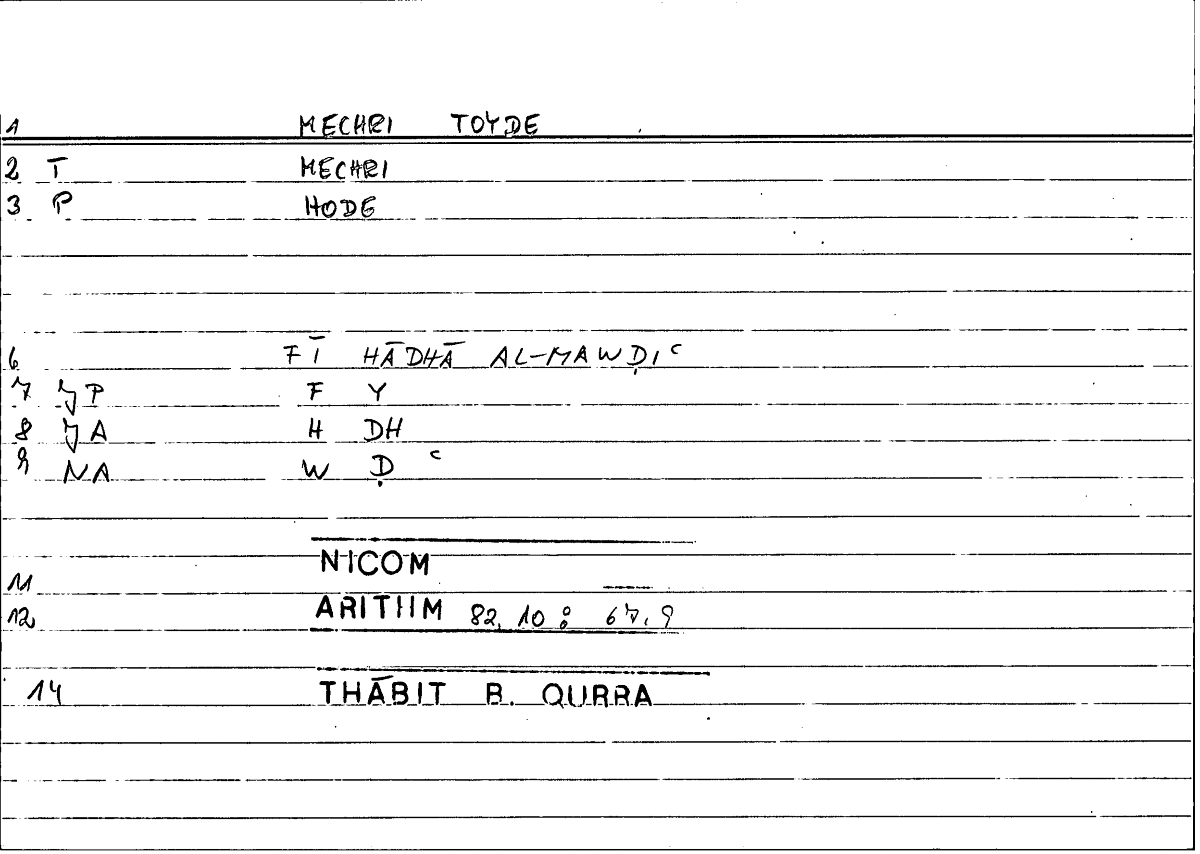 1 MECHRI TOYDE
2 T MECHRI
3 P HODE
6 FĪ HĀDHĀ AL-MAWḌIʿ
7 JP F Y
8 JA H DH
9 NA W Ḍ ʿ
NICOM
11
12 ARITHM 82, 10 : 67, 9
14 THĀBIT B. QURRA